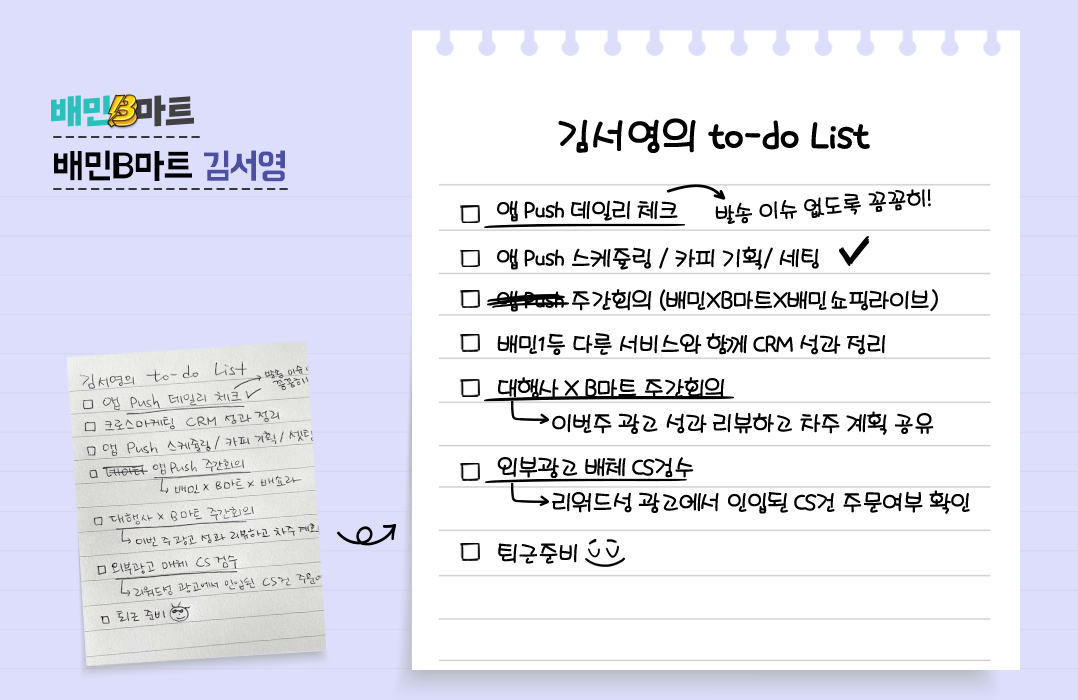 배민B마트
배민B마트 김서영
김서영의 to-do List
앱 Push 데일리 체크 발송 이슈 없도록 꼼꼼히!
앱 Push 스케줄링 / 카피 기획/ 세팅
앱 Push 주간회의 (배민XB마트X배민쇼핑라이브)
배민1등 다른 서비스와 함께 CRM 성과 정리
대행사 X B마트 주간회의
이번주 광고 성과 리뷰하고 차주 계획 공유
외부광고 배체 CS검수
리워드성 광고에서 인입된 CS건 주문여부 확인
퇴근준비
김서영의 to-do List
발송 이슈
꼼꼼히!!
앱 Push 데일리 체크
크로스마케팅 CRM 성과 정리
앱 Push 스케줄링 / 카피 기획 / 셋팅
데이터 앱 Push 주간회의
배민 x B마트 x 배쇼라
대행사 x B마트 주간회의
이번 주 광고 성과 리뷰하고 차주 계획
외부광고 매체 CS 검수
리워드성 광고에서 인입된 CS건 주문
퇴근 준비